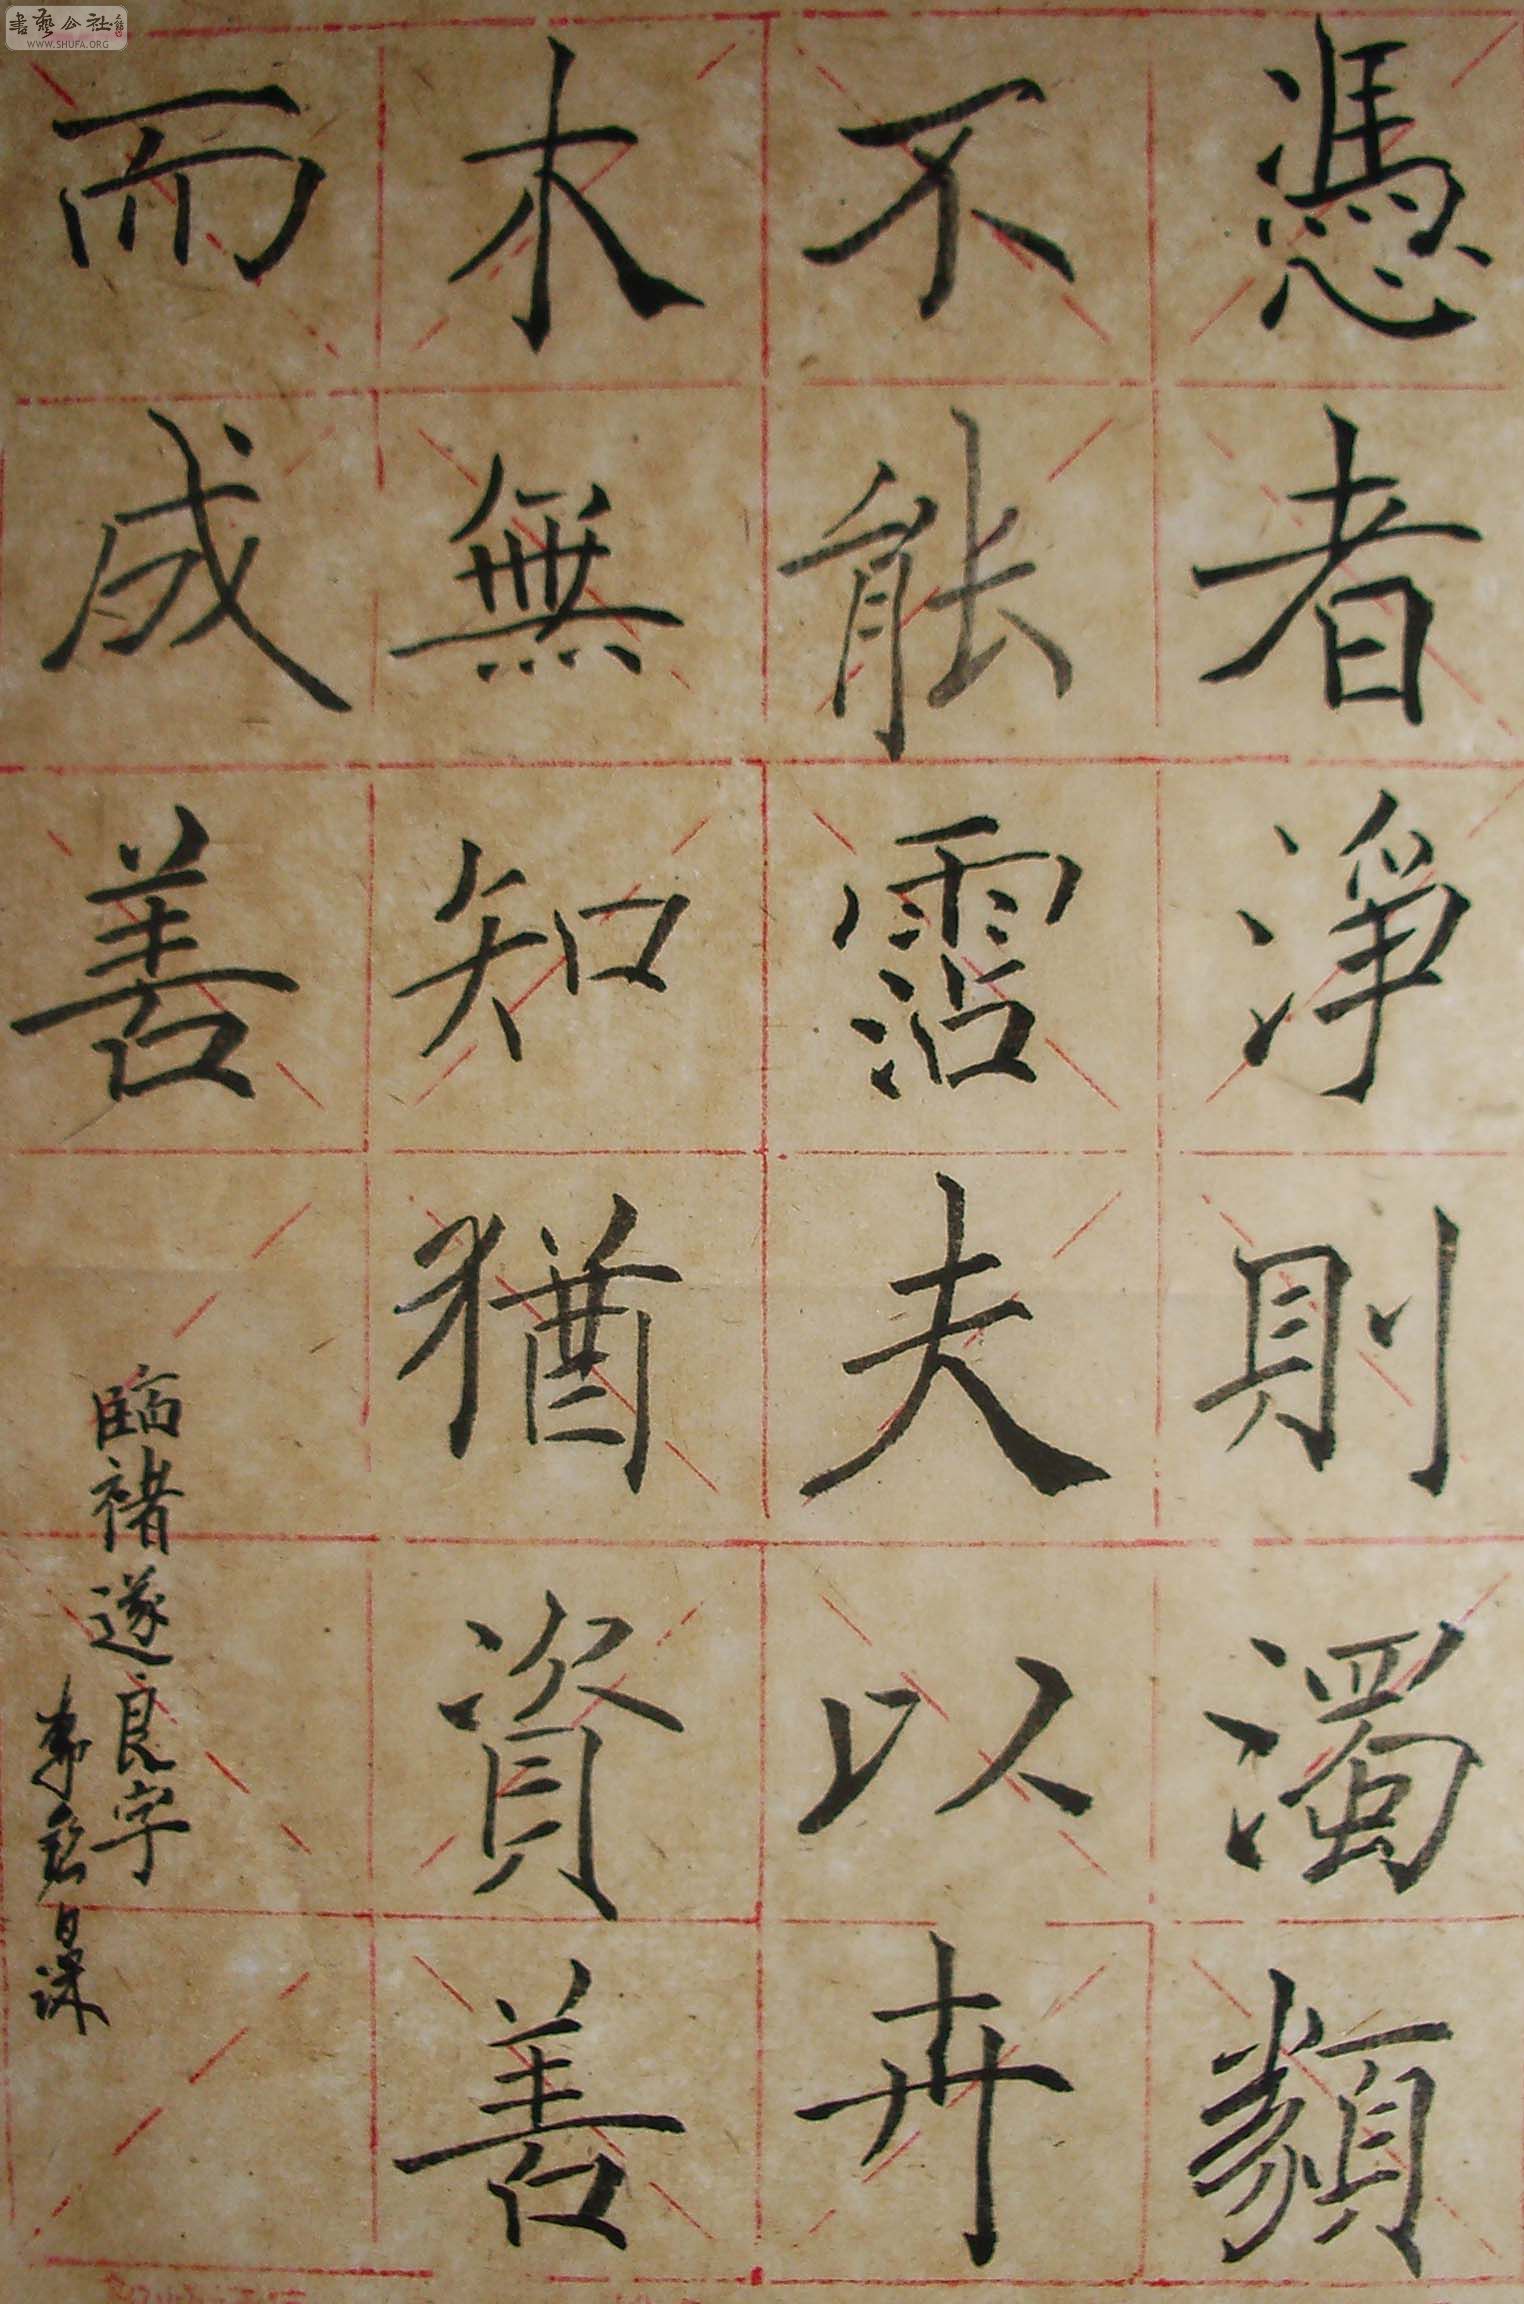 憑者淨則濁類
不能霑夫以卉
木無知猶資善
而成善
臨褚遂良字
日課
書藝公社
WWW.SHUFA.ORG